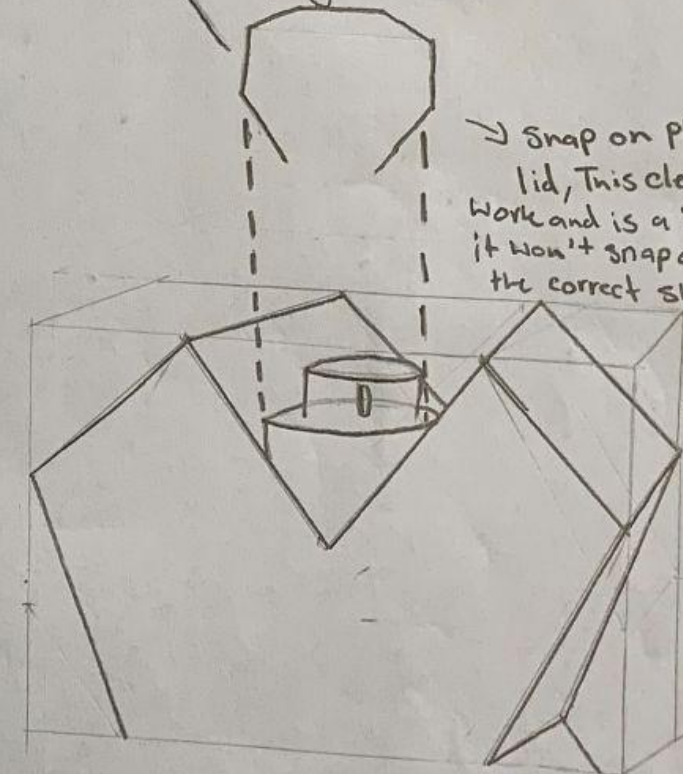 snap on
lid, This
work and is a
it won't snap
the correct